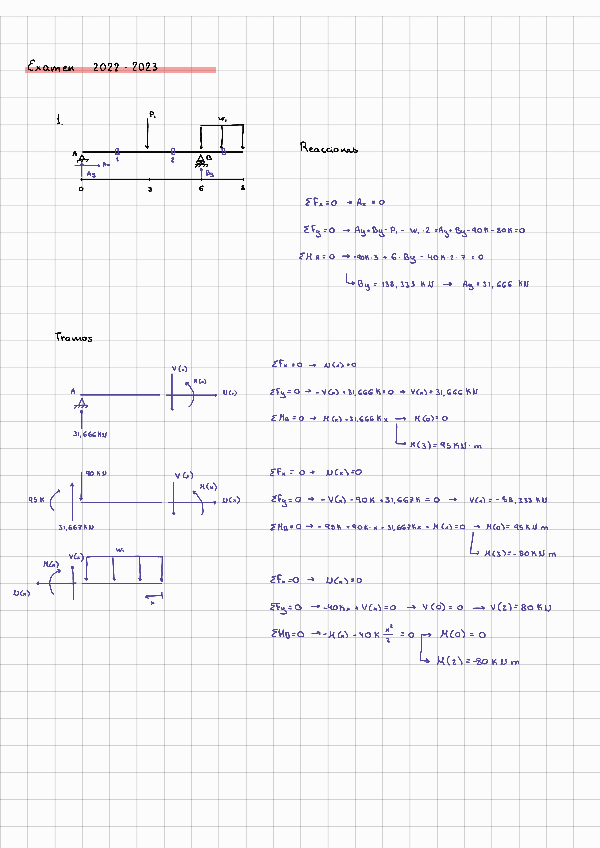 Examen 2022-2023
1.
P₁
W₁
A
1
2
B
Ax
Ay
By
0 3 6 8
Reacciones
ΣFx=0 → Ax=0
ΣFy=0 → Ay+By-P₁-W₁·2=Ay+By-90K-80K=0
ΣMA=0 → -90K·3+6·By-40K·2·7=0
↳ By=138,333 KN → Ay=31,666 KN
Tramos
V(x)
A
M(x)
N(x)
31,666KN
ΣFx=0 → N(x)=0
ΣFy=0 → -V(x)+31,666K=0 → V(x)=31,666KN
ΣMa=0 → M(x)-31,666Kx → M(0)=0
↳ M(3)=95KN·m
90KN
V(x)
M(x)
95K
N(x)
31,667KN
ΣFx=0 → N(x)=0
ΣFy=0 → -V(x)-90K+31,667K=0 → V(x)=-58,333KN
→ M(0)=95KN m
↳ M(3)=-80KN m
W₁
V(x)
M(x)
N(x)
x
ΣFx=0 → N(x)=0
ΣFy=0 → -40Kx+V(x)=0 → V(0)=0 → V(2)=80KN
ΣMB=0 → -M(x)-40K x²/2=0 → M(0)=0
↳ M(2)=-80KN m